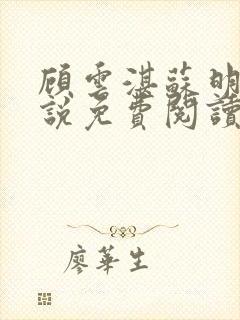 顧雲湛蘇明
說免費閱讀
廖華生